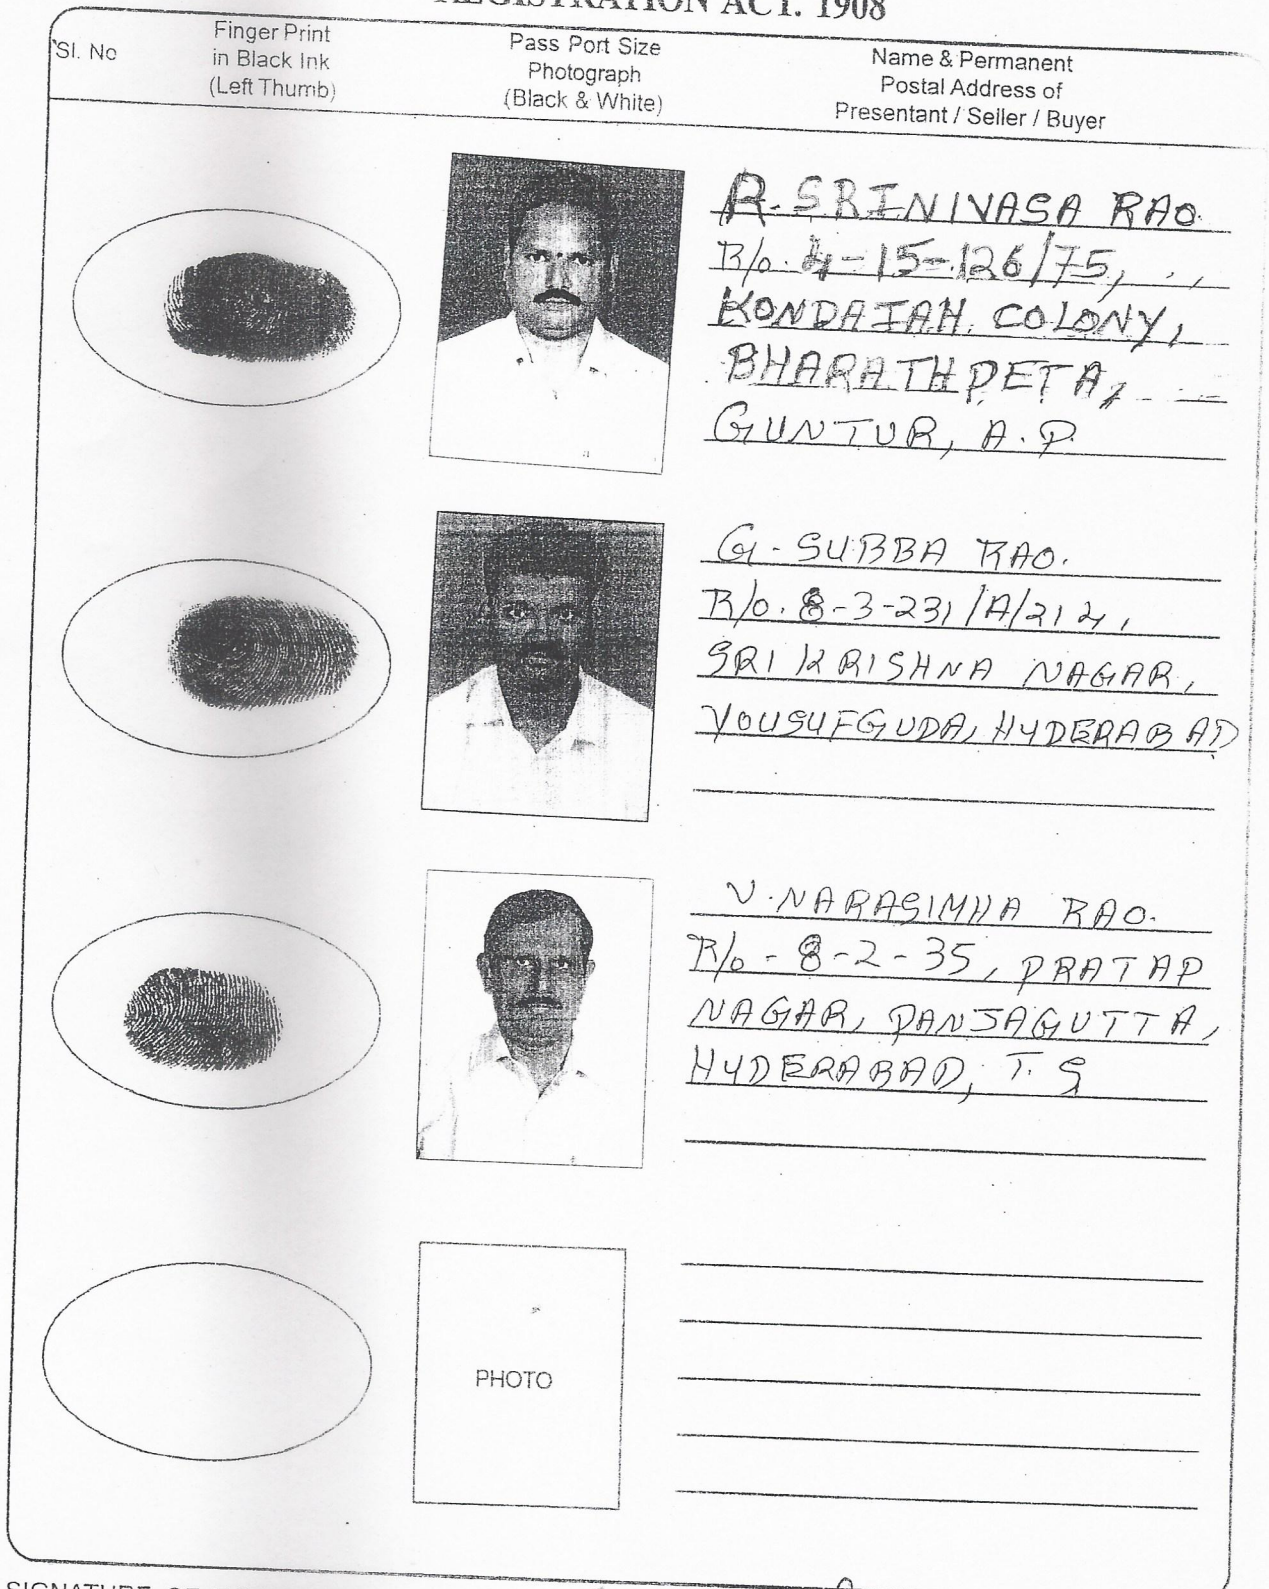 REGISTRATION ACT. 1908
Sl. No
Finger Print
in Black Ink
(Left Thumb)
Pass Port Size
Photograph
(Black & White)
Name & Permanent
Postal Address of
Presentant / Seller / Buyer
R. SRINIVASA RAO
R/o. 4-15-126/75,
KONDAIAH COLONY,
BHARATHPETA,
GUNTUR, A.P.
G. SUBBA RAO.
R/o. 8-3-231/A/214,
SRI KRISHNA NAGAR,
YOUSUFGUDA, HYDERABAD
V. NARASIMHA RAO.
R/o - 8-2-35, PRATAP
NAGAR, PANJAGUTTA,
HYDERABAD, T.S
PHOTO
SIGNATURE